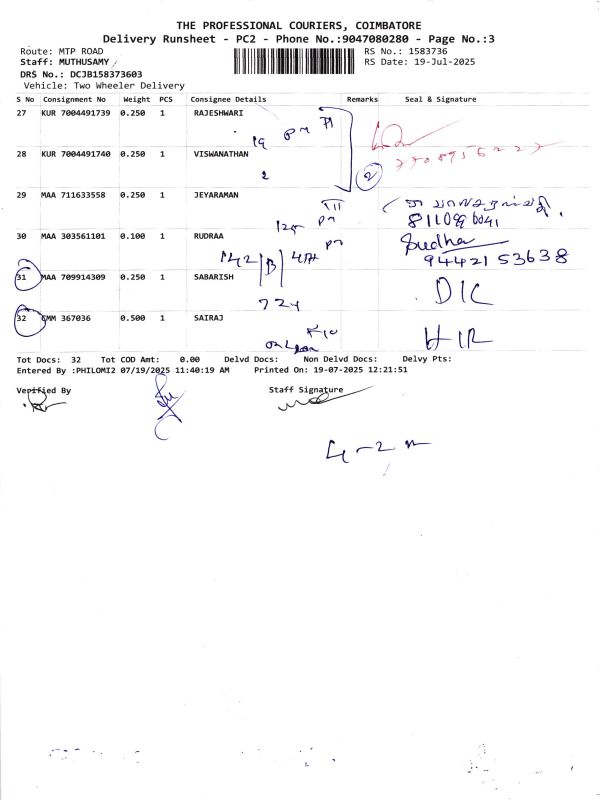 THE PROFESSIONAL COURIERS, COIMBATORE
Delivery Runsheet - PC2 - Phone No.:9047080280 - Page No.:3
Route: MTP ROAD
RS No.: 1583736
Staff: MUTHUSAMY
RS Date: 19-Jul-2025
DRS No.: DCJB158373603
Vehicle: Two Wheeler Delivery
S No Consignment No Weight PCS Consignee Details Remarks Seal & Signature
27 KUR 7004491739 0.250 1 RAJESHWARI
19 pm
28 KUR 7004491740 0.250 1 VISWANATHAN
2 2
29 MAA 711633558 0.250 1 JEYARAMAN
30 MAA 303561101 0.100 1 RUDRAA Sudha
9442153638
31 MAA 709914309 0.250 1 SABARISH D/C
724
32 CMM 367036 0.500 1 SAIRAJ
Tot Docs: 32 Tot COD Amt: 0.00 Delvd Docs: Non Delvd Docs: Delvy Pts:
Entered By :PHILOMI2 07/19/2025 11:40:19 AM Printed On: 19-07-2025 12:21:51
Verified By Staff Signature